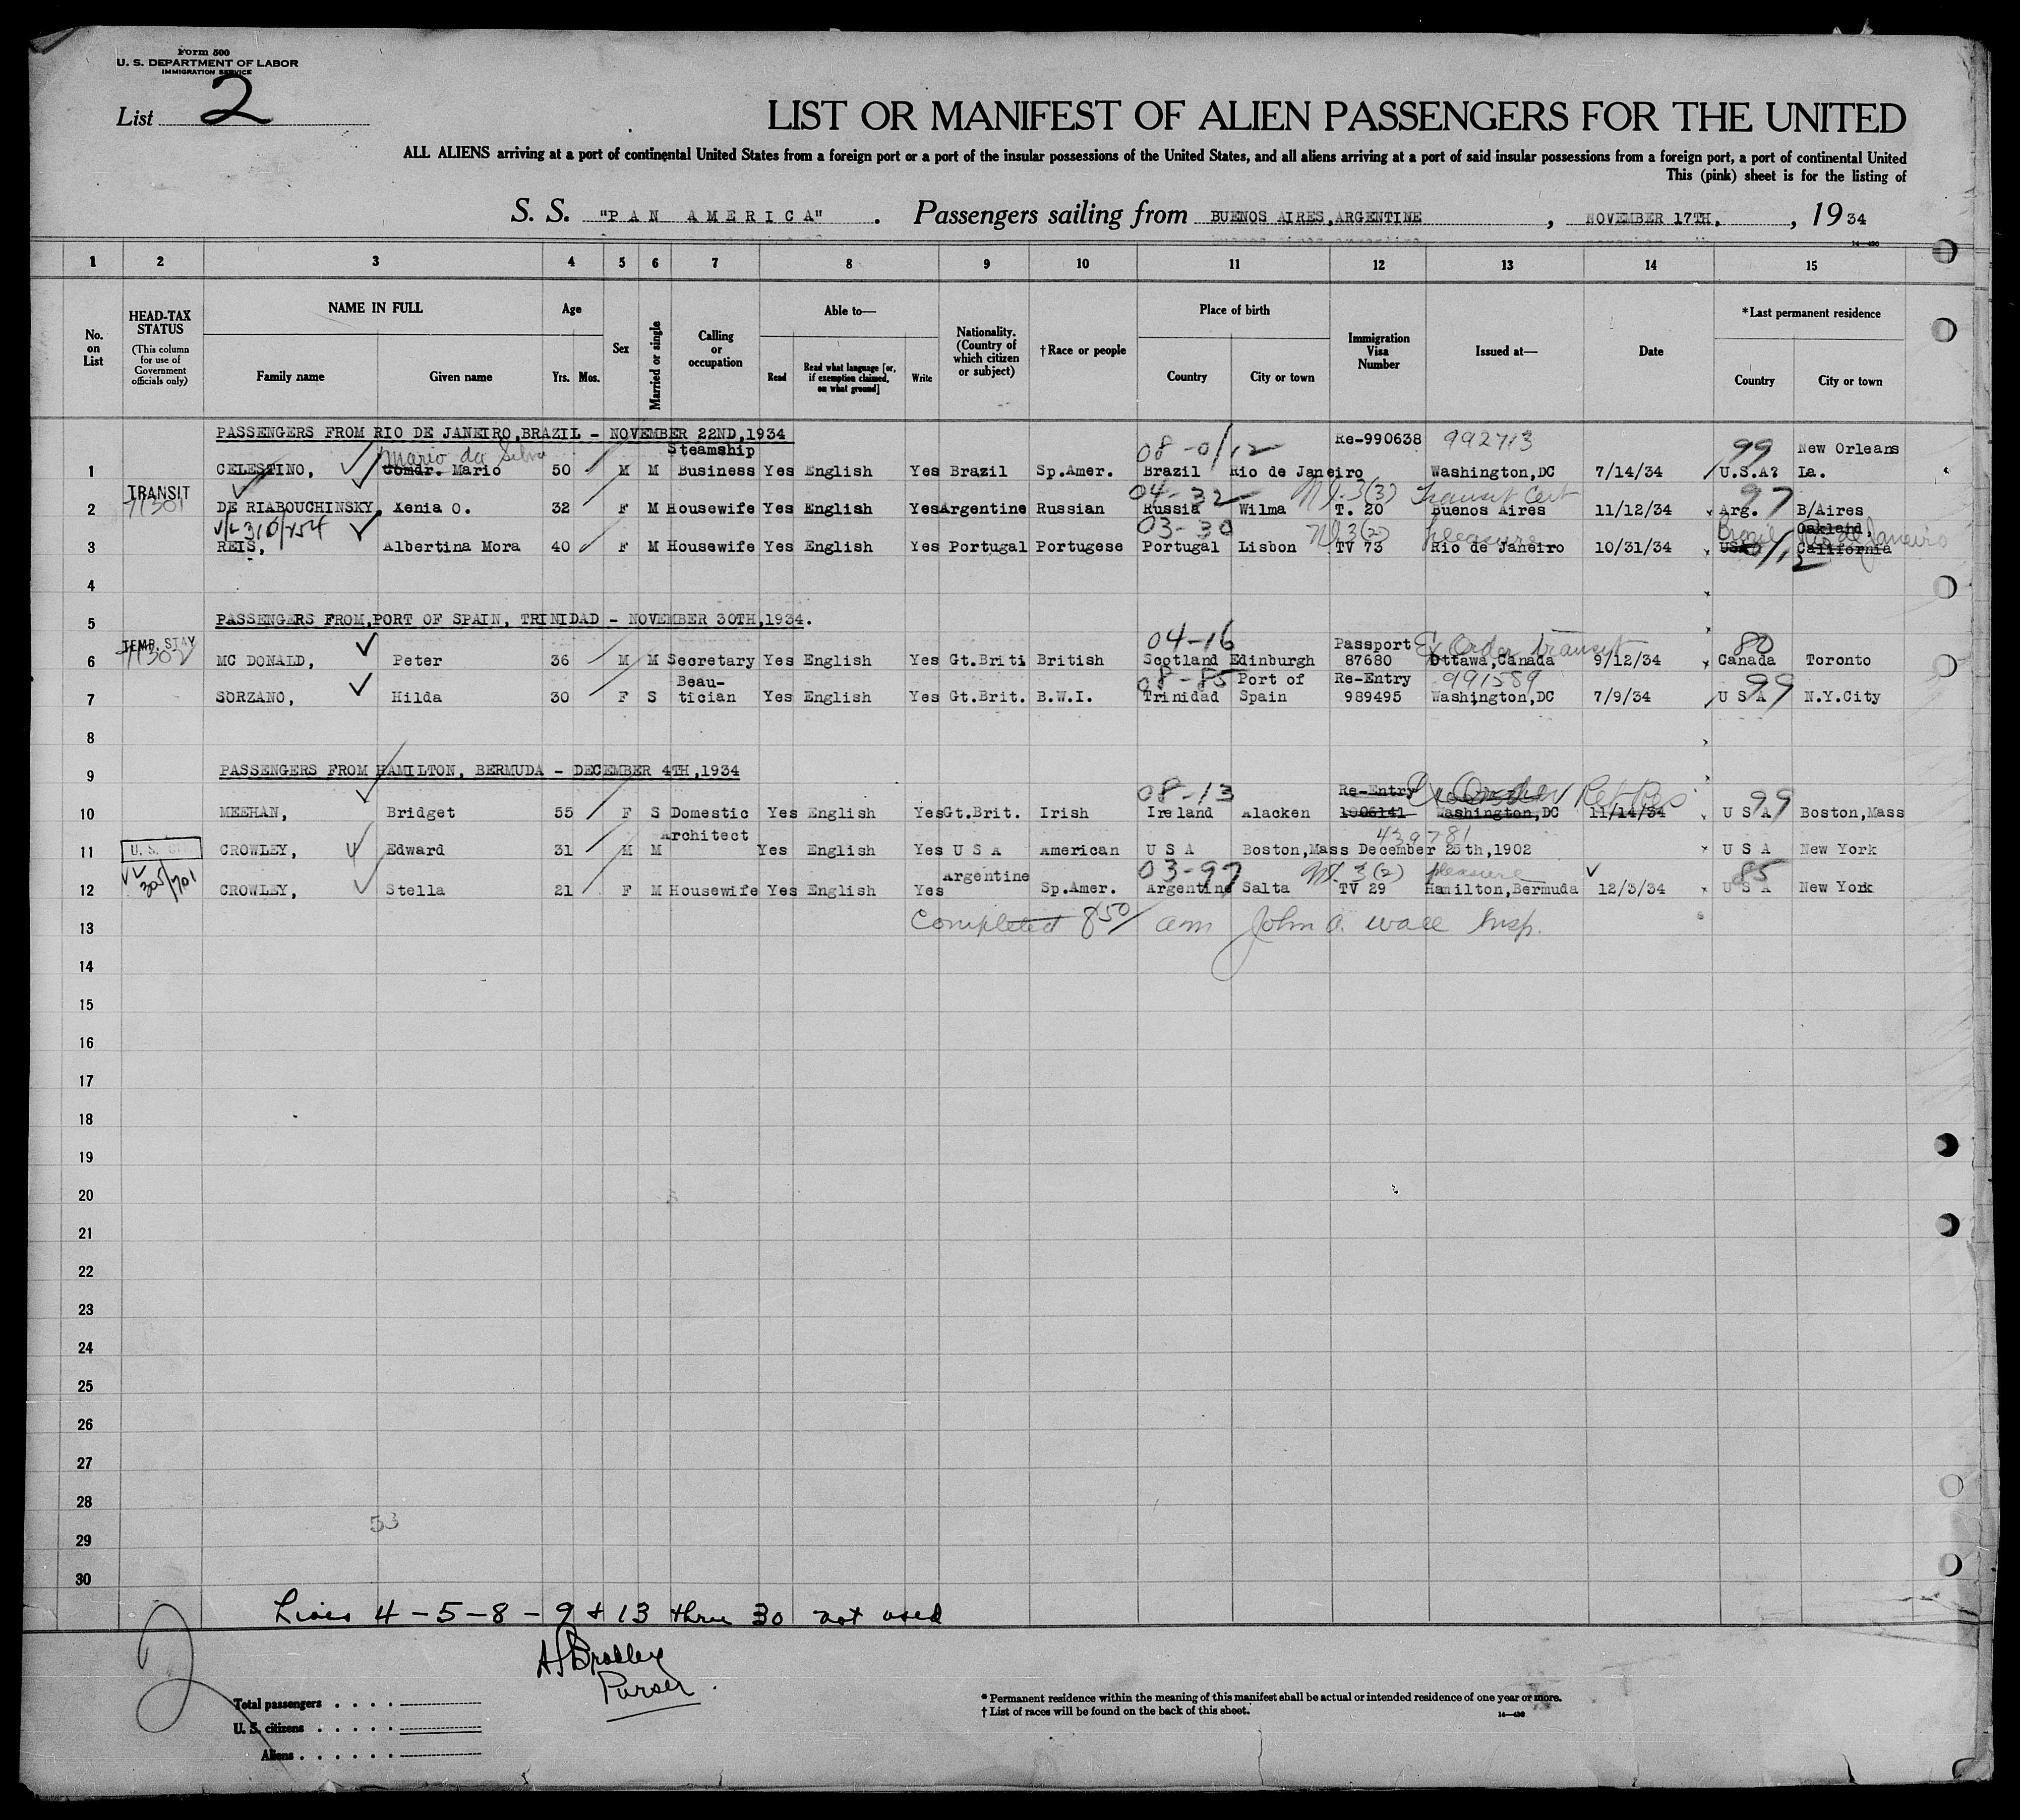 Form 500
U. S. DEPARTMENT OF LABOR
IMMIGRATION SERVICE
List 2
LIST OR MANIFEST OF ALIEN PASSENGERS FOR THE UNITED
ALL ALIENS arriving at a port of continental United States from a foreign port or a port of the insular possessions of the United States, and all aliens arriving at a port of said insular possessions from a foreign port, a port of continental United
This (pink) sheet is for the listing of
S. S. "PAN AMERICA" . Passengers sailing from BUENOS AIRES, ARGENTINE , NOVEMBER 17TH, , 19 34
14—430
1 2 3 4 5 6 7 8 9 10 11 12 13 14 15
No. on List
HEAD-TAX STATUS (This column for use of Government officials only)
NAME IN FULL
Family name Given name
Age
Yrs. Mos.
Sex
Married or single
Calling or occupation
Able to—
Read Read what language [or, if exemption claimed, on what ground] Write
Nationality. (Country of which citizen or subject)
†Race or people
Place of birth
Country City or town
Immigration Visa Number
Issued at—
Date
*Last permanent residence
Country City or town
PASSENGERS FROM RIO DE JANEIRO, BRAZIL - NOVEMBER 22ND, 1934
Mario da Silva Steamship 08-0/12 Re-990638 992713 99 New Orleans
1 CELESTINO, Comdr. Mario 50 M M Business Yes English Yes Brazil Sp.Amer. Brazil Rio de Janeiro Washington, DC 7/14/34 U.S.A? La.
TRANSIT 04-32 Transit Cert 97
2 71301 DE RIABOUCHINSKY, Xenia O. 32 F M Housewife Yes English Yes Argentine Russian Russia Wilma T. 20 Buenos Aires 11/12/34 Arg. B/Aires
V/L 310/454 03-30 3(2) pleasure Brazil Oakland, Rio de Janeiro
3 REIS, Albertina Mora 40 F M Housewife Yes English Yes Portugal Portugese Portugal Lisbon TV 73 Rio de Janeiro 10/31/34 USA California
0/12
4
5 PASSENGERS FROM, PORT OF SPAIN, TRINIDAD - NOVEMBER 30TH, 1934.
TEMP. STAY 04-16 Passport Ex Order transit 80
6 71302 MC DONALD, Peter 36 M M Secretary Yes English Yes Gt.Briti British Scotland Edinburgh 87680 Ottawa, Canada 9/12/34 Canada Toronto
Beau- 08-85 Port of Re-Entry 991589 99
7 SORZANO, Hilda 30 F S tician Yes English Yes Gt.Brit. B.W.I. Trinidad Spain 989495 Washington, DC 7/9/34 U S A N.Y.City
8
9 PASSENGERS FROM HAMILTON, BERMUDA - DECEMBER 4TH, 1934
08-13 Re-Entry Ex Order Ret Res 99
10 MEEHAN, Bridget 55 F S Domestic Yes English Yes Gt.Brit. Irish Ireland Alacken 1006141 Washington, DC 11/14/34 U S A Boston, Mass
Architect 439781
11 CROWLEY, Edward 31 M M Yes English Yes U S A American U S A Boston, Mass December 25th, 1902 U S A New York
305/701 Argentine 03-97 3(2) pleasure 85
12 CROWLEY, Stella 21 F M Housewife Yes English Yes Sp.Amer. Argentine Salta TV 29 Hamilton, Bermuda 12/3/34 U S A New York
13 Completed 8 50/ am John A. Wall Insp.
14
15
16
17
18
19
20
21
22
23
24
25
26
27
28
53
29
30
Lines 4-5-8-9 & 13 thru 30 not used
2
Bradley
Purser
Total passengers
U. S. citizens
Aliens
* Permanent residence within the meaning of this manifest shall be actual or intended residence of one year or more.
† List of races will be found on the back of this sheet.
14—430